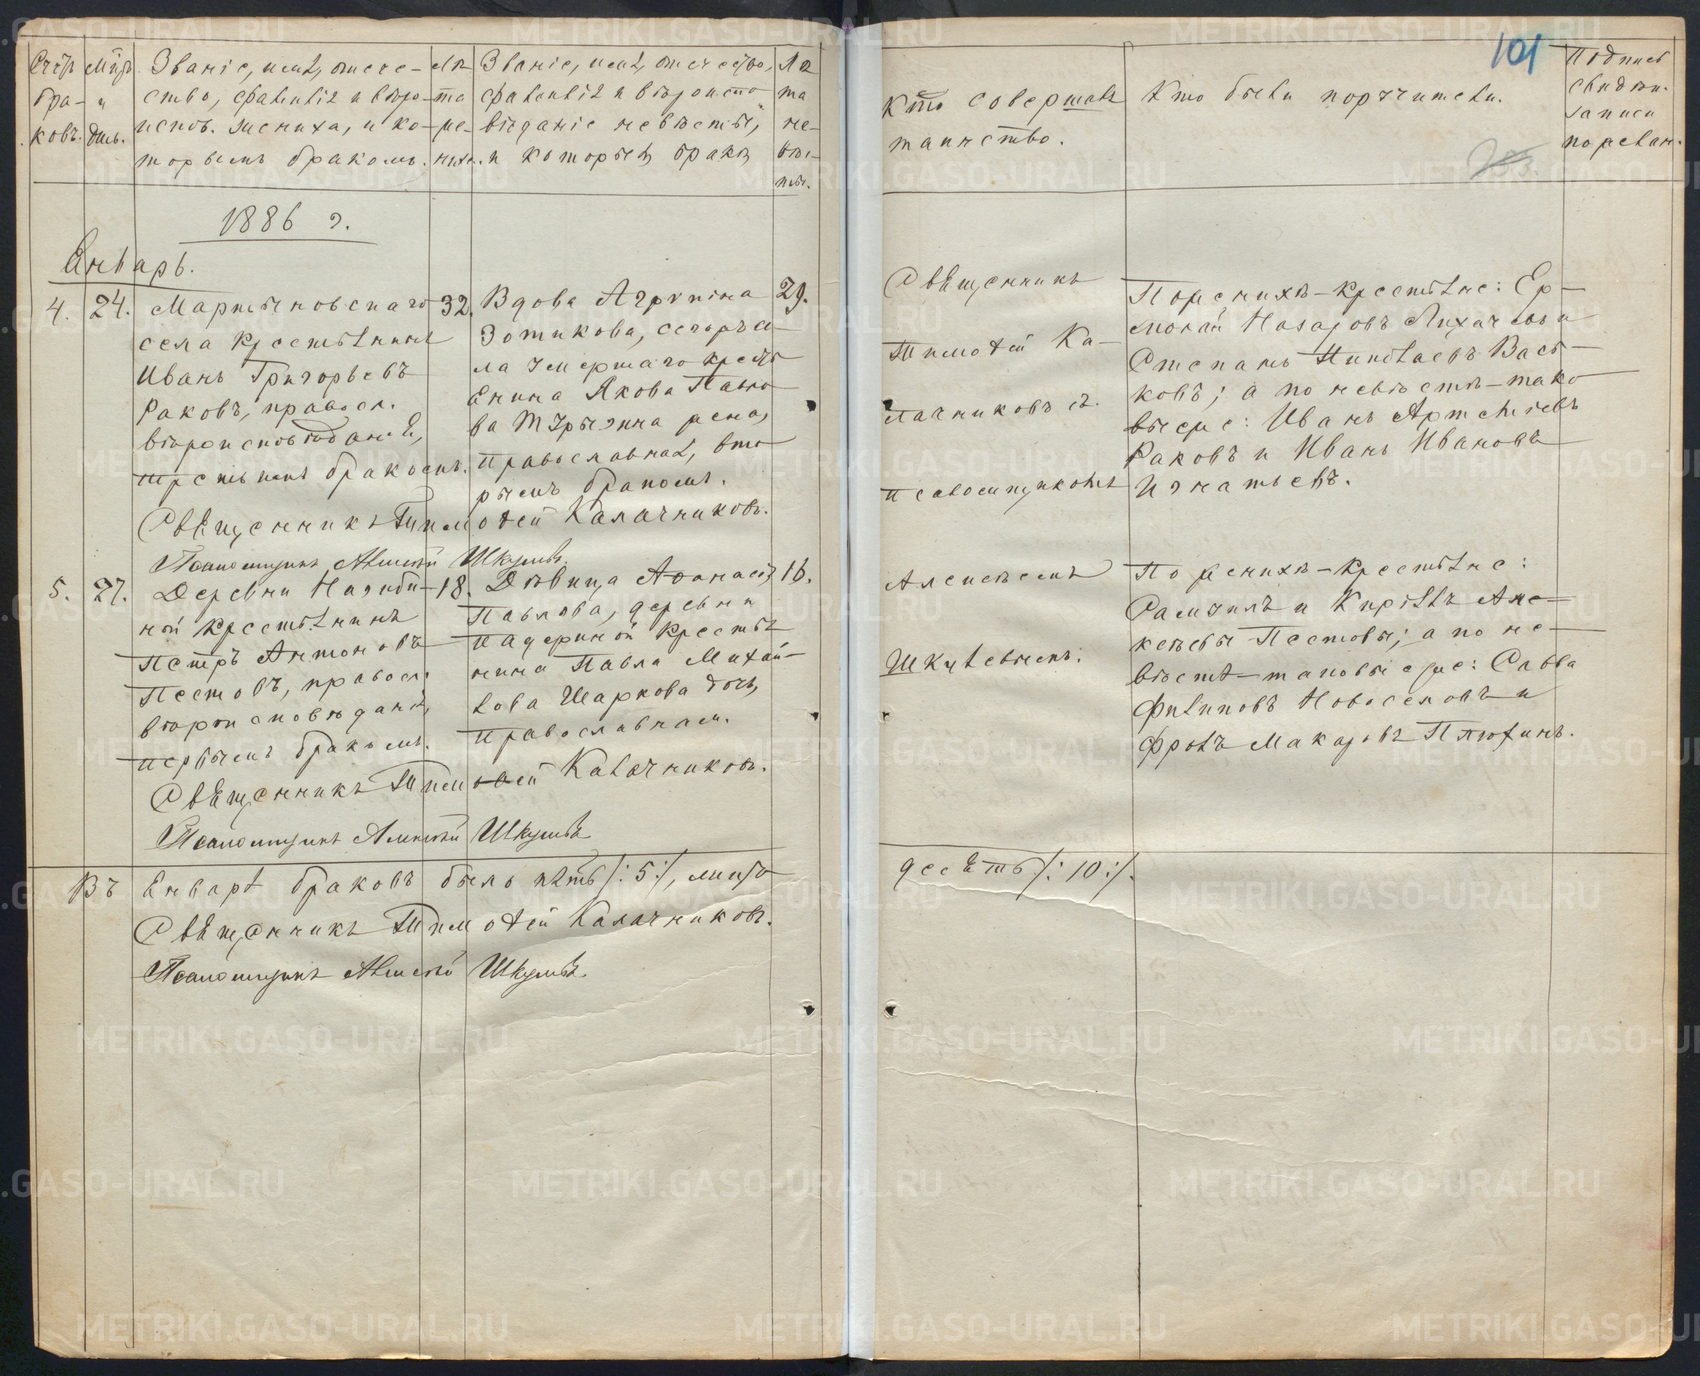 101
Счетъ бра-ковъ.
Мѣс. и день.
Званіе, имя, отече-
ство, фамилія и вѣро-
испов. жениха, и ко-
торымъ бракомъ.
Лѣ-
та
же-
ниха.
Званіе, имя, отечество,
фамилія и вѣроиспо-
вѣданіе невѣсты,
и которымъ бракомъ
Лѣ
та
не-
вѣс-
ты.
Кто совершалъ
таинство.
Кто были поручители.
Подпись
свидѣт.
записи
по желан.
1886 г.
Январь.
4. 24.
Мартыновскаго
села крестьянинъ
Иванъ Григорьевъ
Раковъ, правосл.
вѣроисповѣданія,
третьимъ бракомъ.
32.
Вдова Агрипина
Зотикова, сего же се-
ла умершаго кресть
янина Якова Павло
ва жена,
православная, вто
рымъ бракомъ.
29.
Священникъ
Тимофей Ка-
лачниковъ съ
псаломщикомъ
Порснихъ
По женихѣ – крестьяне: Ер-
молай Назаровъ Лихачевъ и
Степанъ Николаевъ Вась-
ковъ; а по невѣстѣ – тако
выеже: Иванъ Артемьевъ
Раковъ и Иванъ Ивановъ
Игнатьевъ.
Священникъ Тимофей Калачниковъ.
Псаломщикъ Алексѣй Шкулевъ
5. 27.
Деревни
ной крестьянинъ
Петръ Антоновъ
Пестовъ, правосл.
вѣроисповѣданія,
первымъ бракомъ.
18.
Дѣвица Афанасія
Павлова, деревни
Падериной крестья
нина Павла Михай-
лова Шаркова дочь,
православная.
16.
Алексѣемъ
Шкулевымъ.
По женихѣ – крестьяне:
Самуилъ и Кирилъ Але-
ксѣевы Пестовы; а по не-
вѣстѣ – таковые же: Савва
Филиповъ Новоселовъ и
Фролъ Макаровъ Плюхинъ.
Священникъ Тимофей Калачниковъ.
Псаломщикъ Алексѣй Шкулевъ
Въ Январѣ браковъ было пять /: 5 :/, лицъ десять /: 10 :/.
Священникъ Тимофей Калачниковъ.
Псаломщикъ Алексѣй Шкулевъ.
METRIKI.GASO-URAL.RU